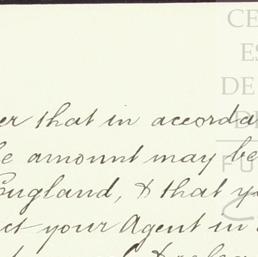 er that in accorda
e amount may be
England, & that y
ct your Agent in
CE
ES
DE
DE
F U